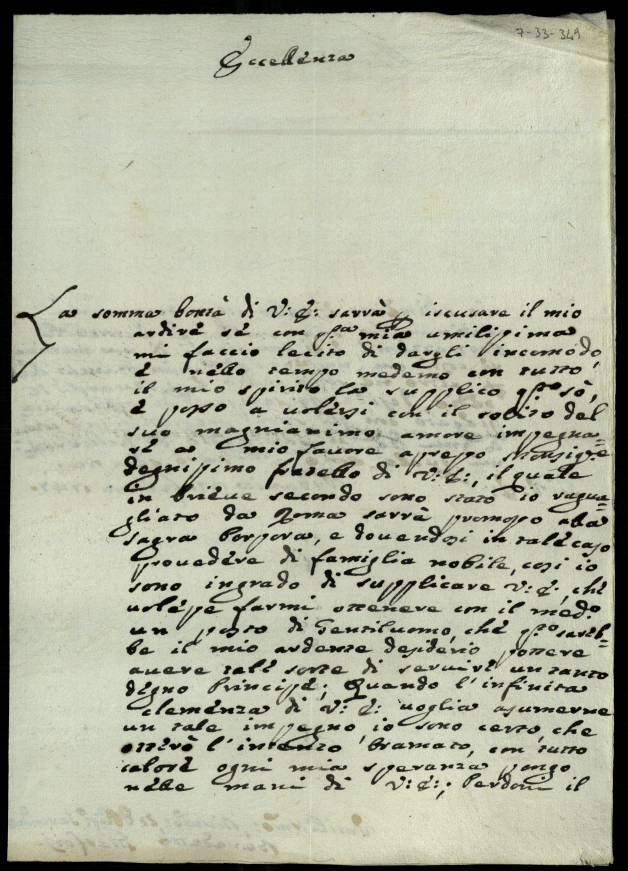 7-33-349
Eccellenza
La somma bontà di V: E: sarrà p iscusare il mio
ardire se con qsta mia umilissima
mi faccio lecito di dargli incomodo,
è nello tempo medemo con tutto
il mio spirito la supplico qto sò,
è posso a volersi con il solito del
suo magnianimo amore impegna=
re a mio favore apresso Monsigre
degnissimo fratello di V: E:, il quale
in brieve secondo sono stato io ragua=
gliato da Roma sarrà promosso alla
sagra Porpora, e dovendosi in tale caso
provedere di famiglia nobile, così io
sono ingrado di supplicare V: E:, che
volesse farmi ottenere con il medo
un posto di Gentiluomo, chè qsto sareb=
be il mio ardente desiderio pottere
avere tale sorte di servire un tanto
degno Principe; Quando l'infinita
clemenza di V: E: voglia asumerne
un tale impegno io sono certo, che
otterò l'intenzo bramato, con tutto
calore ogni mia speranza pongo
nelle mani di V: E:; Perdoni il